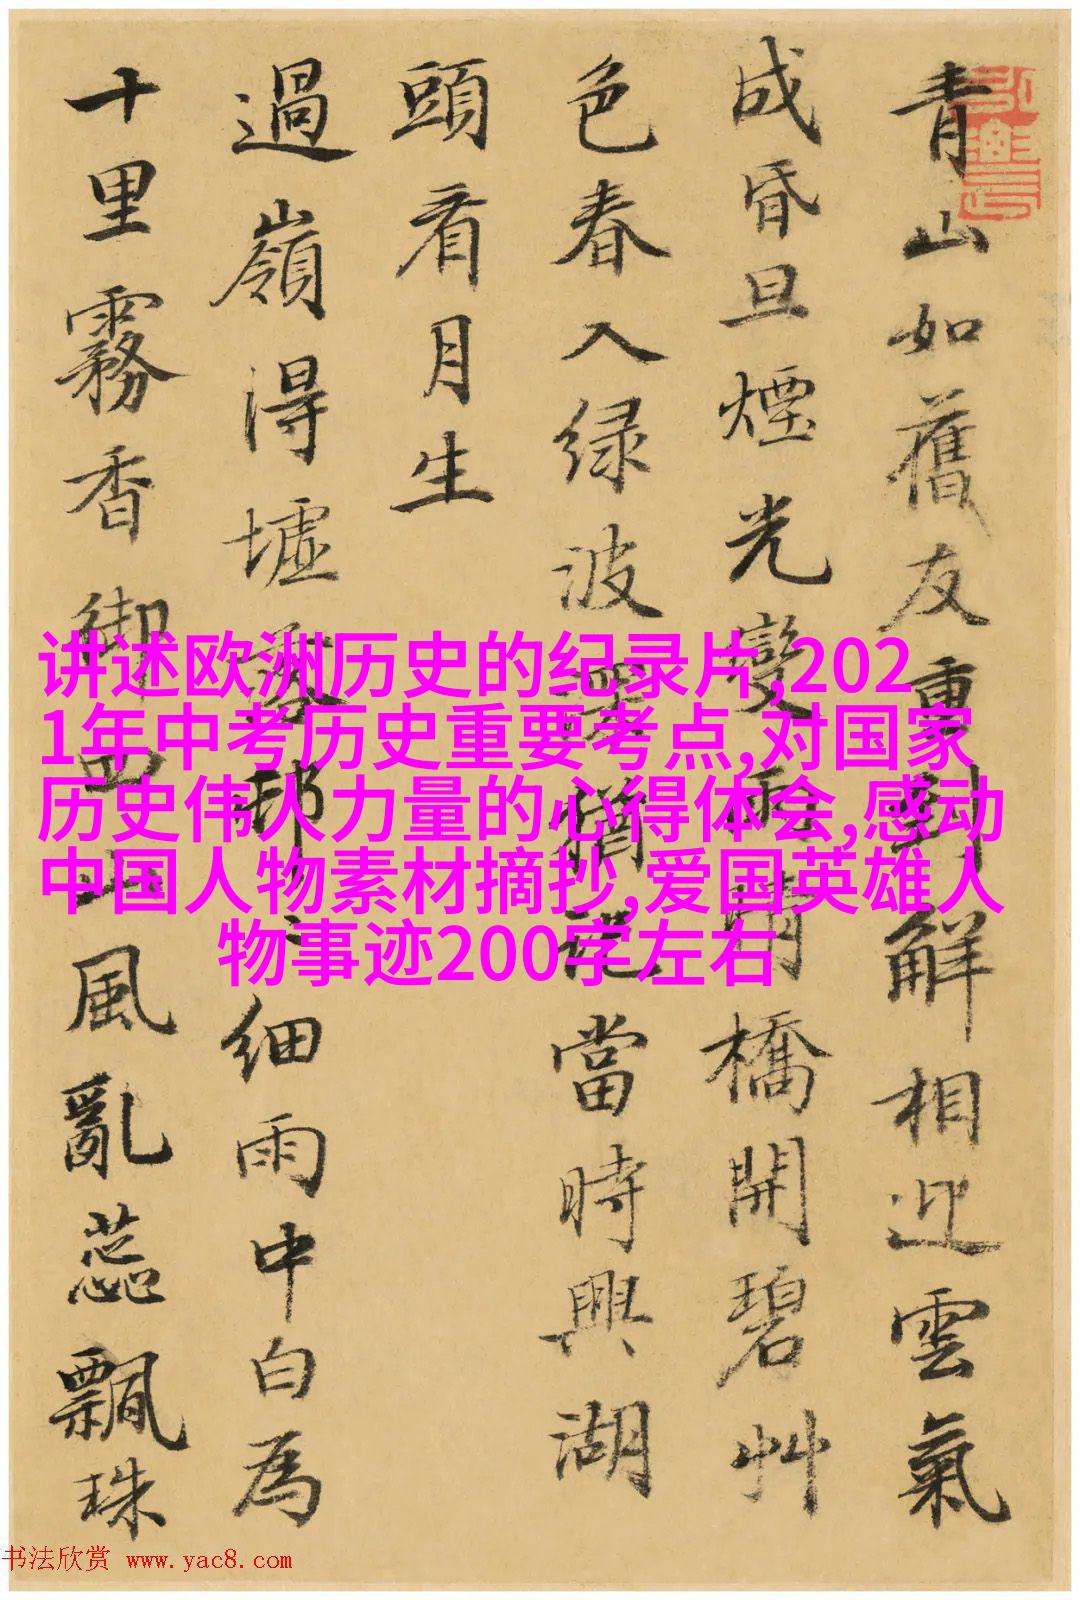 青山如舊友重對解相迎雲氣
成昏旦煙光變雨晴橋開碧艸
色春入绿波猶記當時興湖
頭看月生
過嶺得墟邨细雨中白為
十里霧香四山風亂蕊飄珠
讲述欧洲历史的纪录片,202
1年中考历史重要考点,对国家
历史伟人力量的心得体会,感动
中国人物素材摘抄,爱国英雄人
物事迹200字左右
书法欣赏 www.yac8.com